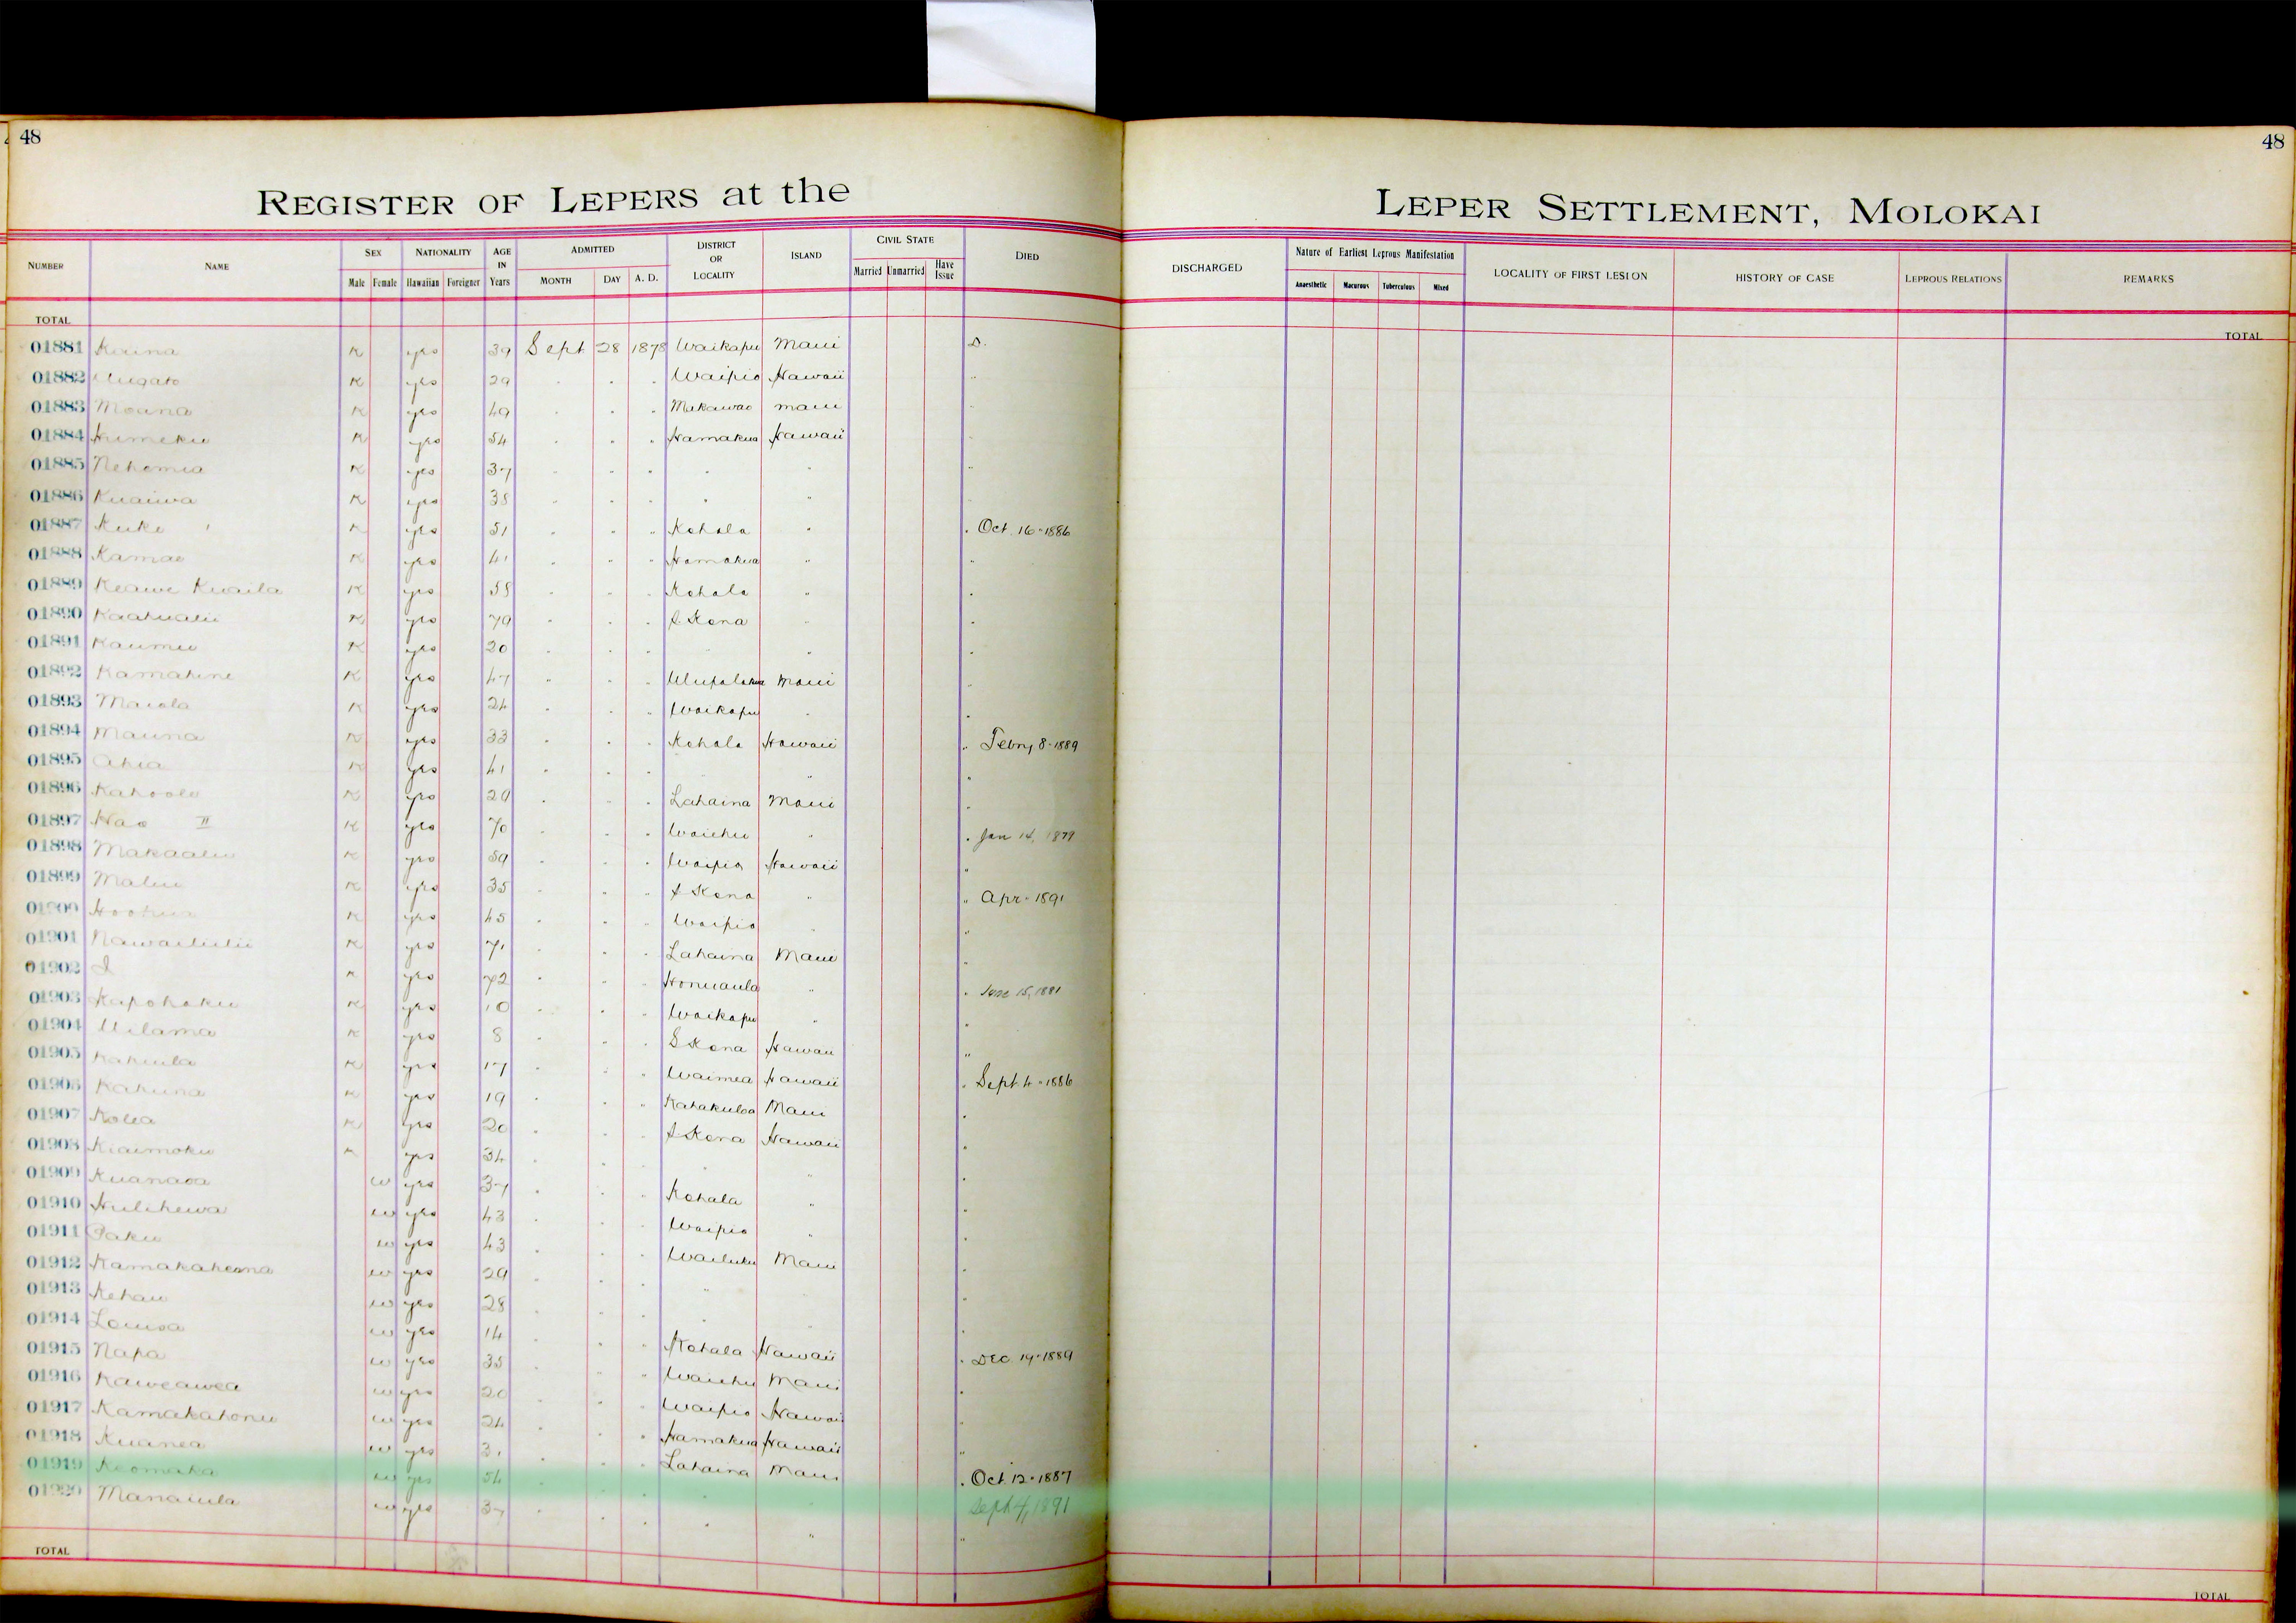 48
48
REGISTER OF LEPERS at the
LEPER SETTLEMENT, MOLOKAI
NUMBER NAME SEX NATIONALITY AGE IN Years ADMITTED DISTRICT OR LOCALITY ISLAND CIVIL STATE DIED
Male Female Hawaiian Foreigner MONTH DAY A. D. Married Unmarried Have Issue
DISCHARGED Nature of Earliest Leprous Manifestation LOCALITY OF FIRST LESION HISTORY OF CASE LEPROUS RELATIONS REMARKS
Anaesthetic Macurous Tuberculous Mixed
TOTAL
TOTAL
01881 K yes 39 Sept 28 1878 Waikapu Maui D.
01882 K yes 29 " " " Waipio Hawaii "
01883 Moana K yes 49 " " " Makawao Maui "
01884 K yes 54 " " " Hamakua Hawaii "
01885 Nehemia K yes 37 " " " " " "
01886 Kuaiwa K yes 38 " " " " " "
01887 K yes 51 " " " Kohala " " Oct. 16 - 1886
01888 Kamao K yes 41 " " " Hamakua " "
01889 Keawe K yes 58 " " " Kohala " "
01890 K yes 79 " " " Kona " "
01891 K yes 20 " " " " " "
01892 Kamahine K yes 47 " " " Ulupalakua Maui "
01893 Maiola K yes 24 " " " Waikapu " "
01894 Mauna K yes 33 " " " Kohala Hawaii " Febry 8 - 1889
01895 Ahia K yes 41 " " " " " "
01896 K yes 29 " " " Lahaina Maui "
01897 II K yes 70 " " " Waiehu " " Jan 14, 1879
01898 K yes 59 " " " Waipio Hawaii "
01899 K yes 35 " " " Kona " " Apr - 1891
01900 K yes 45 " " " Waipio " "
01901 K yes 71 " " " Lahaina Maui "
01902 I K yes 72 " " " Honuaula " " June 15, 1881
01903 Kapohaku K yes 10 " " " Waikapu " "
01904 Uilama K yes 8 " " " S Kona Hawaii "
01905 K yes 17 " " " Waimea Hawaii " Sept. 4 - 1886
01906 Kahuna K yes 19 " " " Kahakuloa Maui "
01907 Kolea K yes 20 " " " Kona Hawaii "
01908 Kiaimoku K yes 34 " " " " " "
01909 w yes 37 " " " Kohala " "
01910 Hulihewa w yes 43 " " " Waipio " "
01911 Paku w yes 43 " " " Wailuku Maui "
01912 w yes 29 " " " " " "
01913 Kehau w yes 28 " " " " " "
01914 Louisa w yes 14 " " " Kohala Hawaii " Dec. 19 - 1889
01915 Napa w yes 35 " " " Waiehu Maui "
01916 Kaweawea w yes 20 " " " Waipio Hawaii "
01917 Kamakahonu w yes 24 " " " Hamakua Hawaii "
01918 Kuanea w yes 31 " " " Lahaina Maui " Oct. 12 - 1887
01919 w yes 54 " " " " " Sept 4, 1891
01920 Manaiula w yes 37 " " " " " "
TOTAL
TOTAL